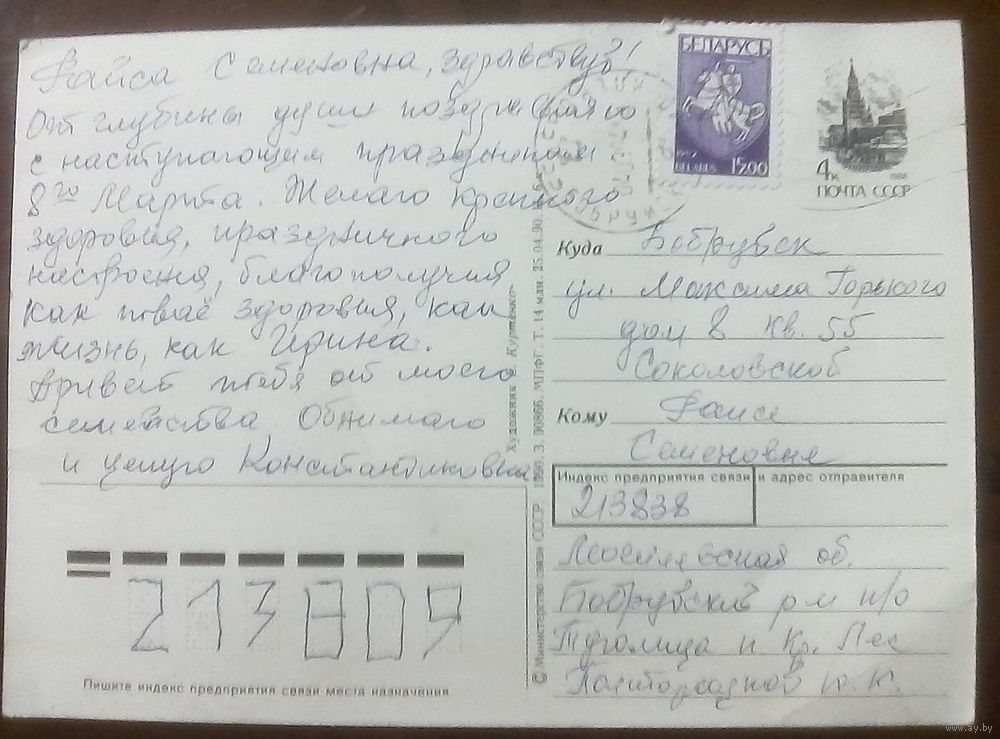 Раиса Семеновна, здравствуй!
От глубины души поздравляю
с наступающим праздником
8го Марта. Желаю крепкого
здоровия, праздничного
настроения, благополучия
как твоё здоровия, как
жизнь, как Ирина.
Привет тебя от моего
семейства. Обнимаю
и целую Константиновна
БЕЛАРУСЬ
1992
BELARUS 15.00
4к 1988
ПОЧТА СССР
Куда Бобруйск
ул. Максима Горького
дом 8 кв. 55
Соколовской
Кому Раисе
Семеновне
Индекс предприятия связи и адрес отправителя
213838
Могилевская об.
Бобруйский р-н п/о
Туголица п Кр. Лес
К. К.
© Министерство связи СССР. 1990. З. 90866. МПФГ. Т. 14 млн. 25.04.90.
Художник Куртенко
213809
Пишите индекс предприятия связи места назначения
www.ay.by